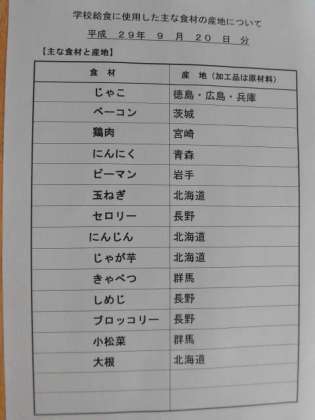 学校給食に使用した主な食材の産地について
平成 29年 9月 20日 分
【主な食材と産地】
食材 産地（加工品は原材料）
じゃこ 徳島・広島・兵庫
ベーコン 茨城
鶏肉 宮崎
にんにく 青森
ピーマン 岩手
玉ねぎ 北海道
セロリー 長野
にんじん 北海道
じゃが芋 北海道
きゃべつ 群馬
しめじ 長野
ブロッコリー 長野
小松菜 群馬
大根 北海道